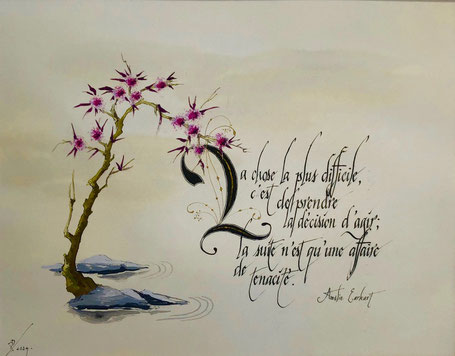 La chose la plus difficile,
c'est de prendre
la décision d'agir;
la suite n'est qu'une affaire
de tenacité.
Amelia Earhart